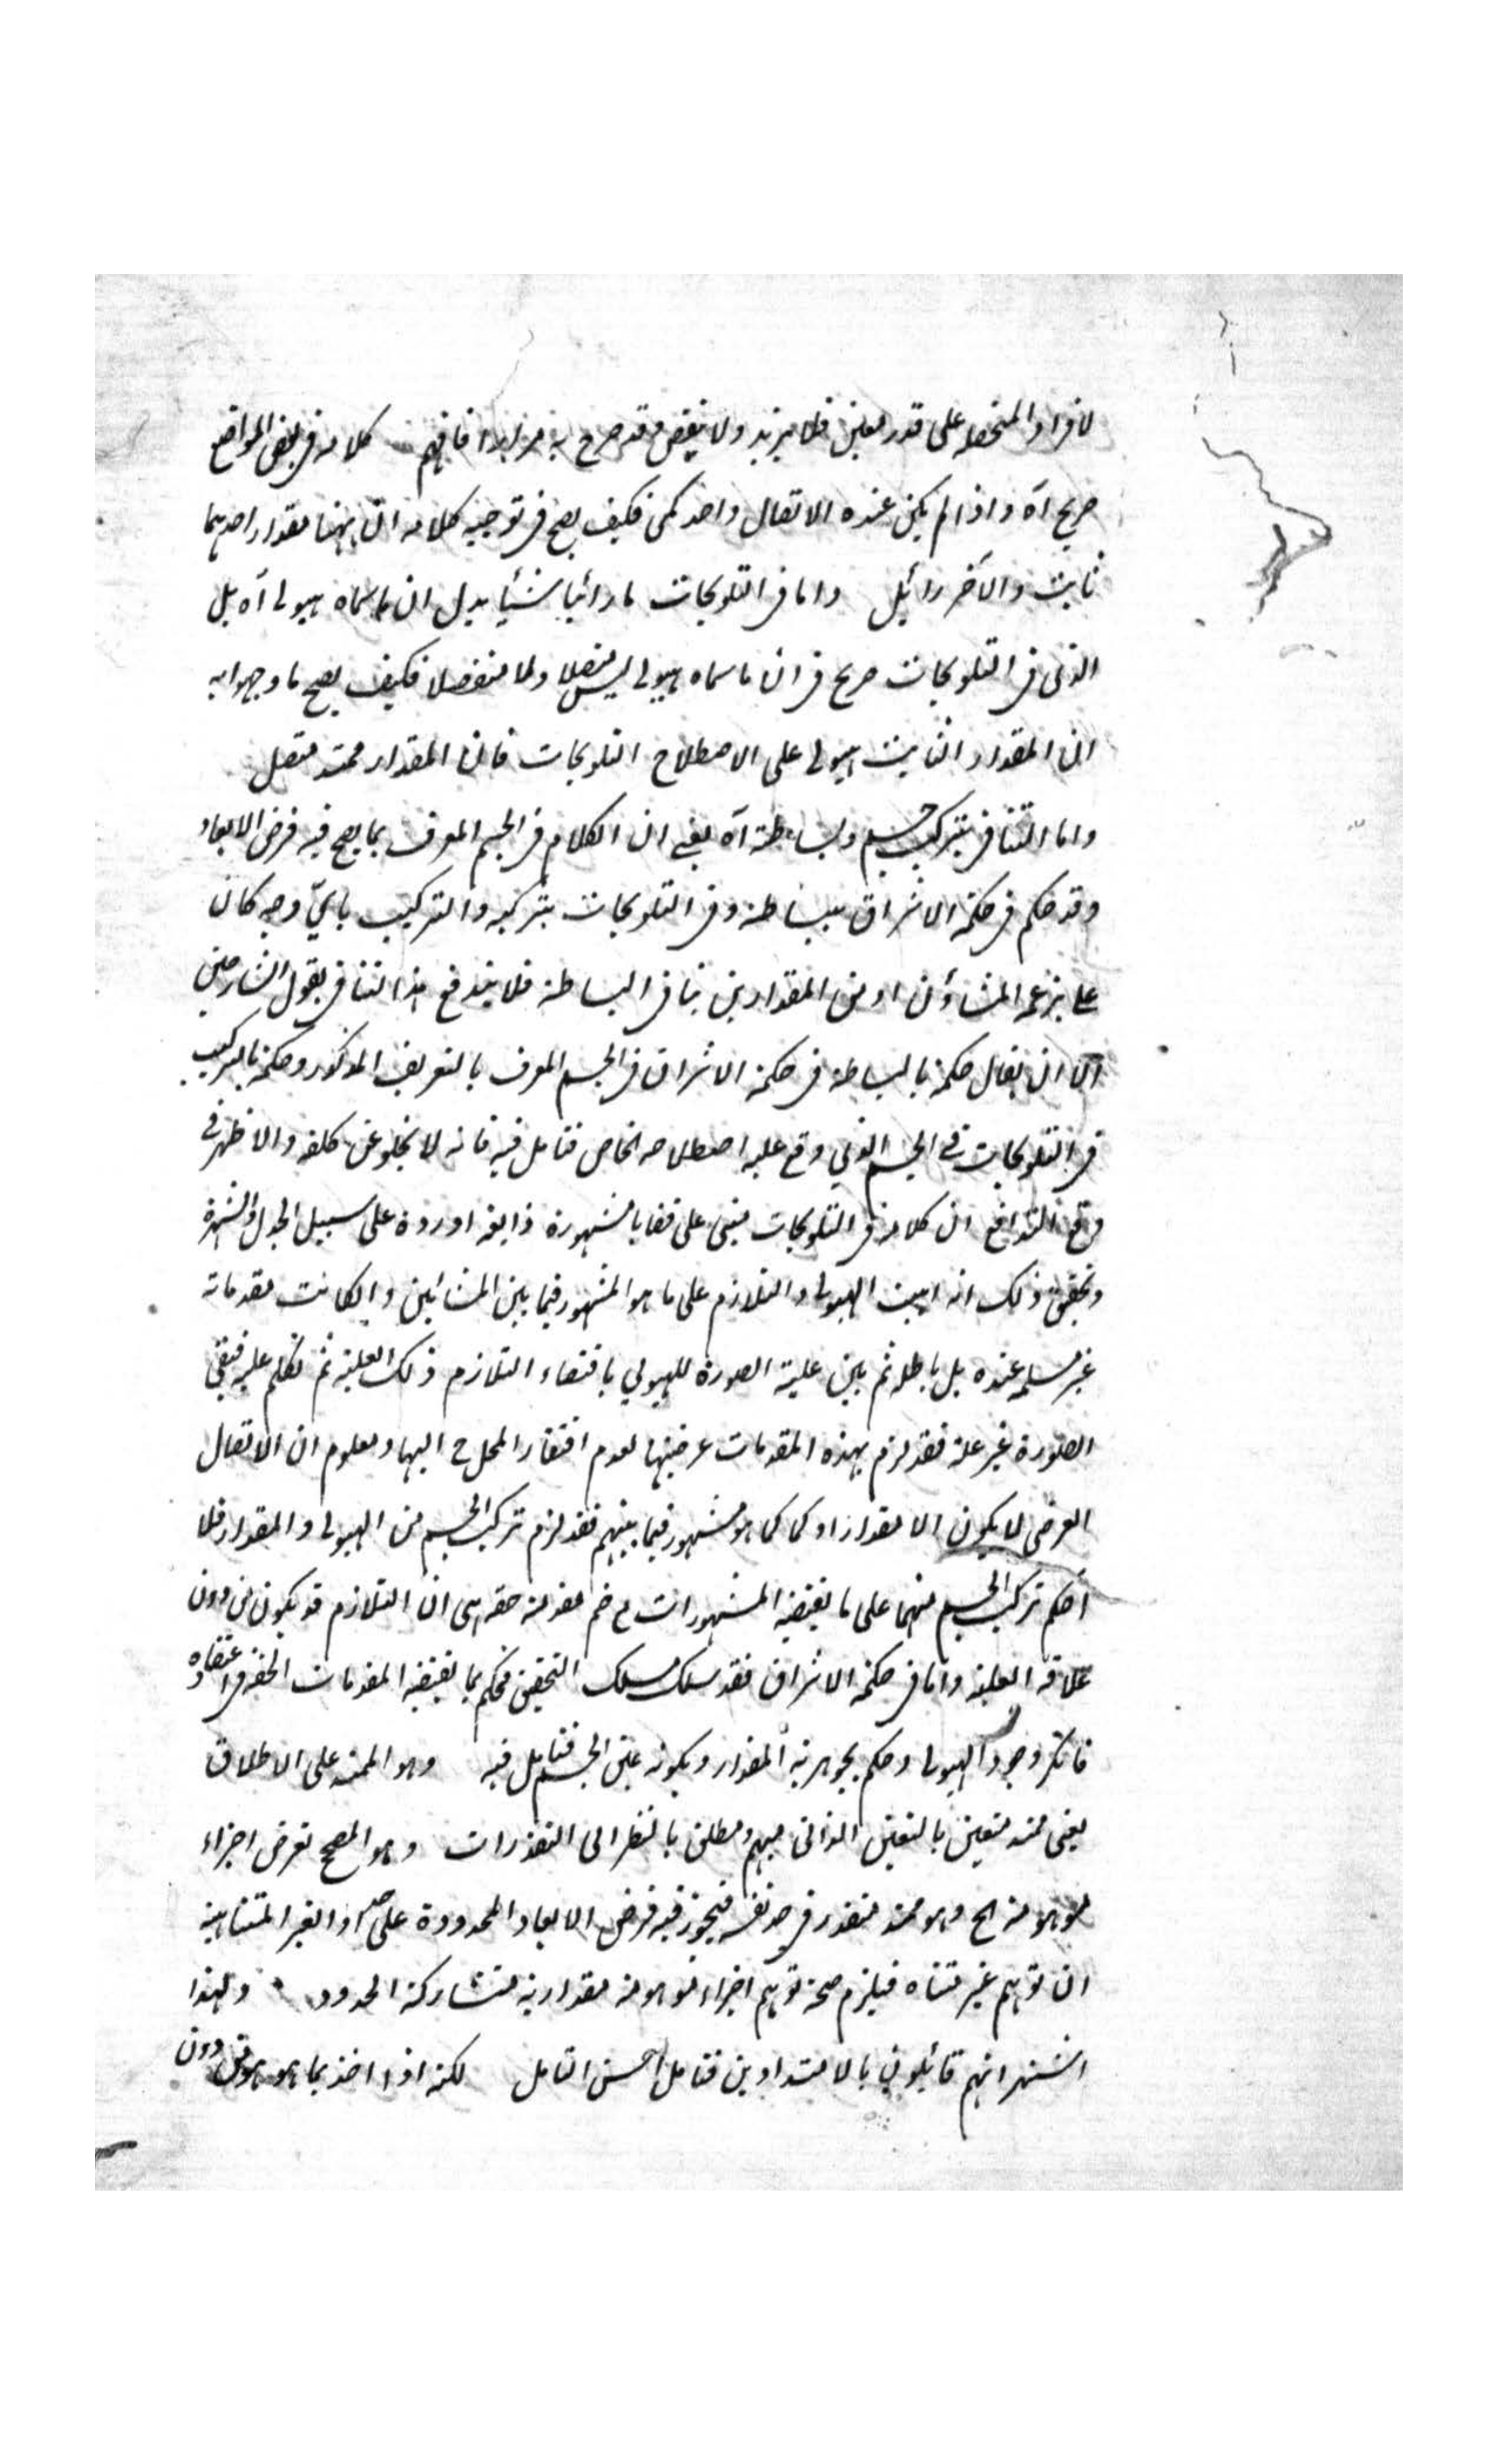 لافراد المنحصلة على قدر معين فلا يزيد ولا ينقص وقد صرح به مزيدا فافهم كلامه في بعض المواضع
صريح آه واذا لم يكن عنده الاتصال واحد كمي فكيف يصح في توجيه كلامه ان ههنا مقدار احدهما
ثابت والآخر زائل واما في التلويحات ما رأينا شيئا يدل ان ما سماه هيولى آه بل
الذي في التلويحات صريح في ان ما سماه هيولى ليس متصلا ولا منفصلا فكيف يصح ما وجهوا به
ان المقدار الثابت هيولى على الاصطلاح التلويحات فان المقدار ممتد متصل
واما التنافي بتركب جسم وبساطته آه يعني ان الكلام في الجسم المعرف بما يصح فيه فرض الابعاد
وقد حكم في حكمة الاشراق ببساطته وفي التلويحات بتركبه والتركيب باي وجه كان
على زعم المشاؤن او من المقدارين ينافي البساطة فلا يندفع هذا التنافي بقول الشارحين
الا ان يقال حكمه بالبساطة في حكمة الاشراق في الجسم المعرف بالتعريف المذكور وحكمه بالتركيب
في التلويحات في الجسم الذي وقع عليه اصطلاحه الخاص فتامل فيه فانه لا يخلو عن كلفة والاظهر في
دفع التدافع ان كلامه في التلويحات مبني على قضايا مشهورة ذايعة اوردة على سبيل الجدل والشهرة
وتحقيق ذلك انه اثبت الهيولى والتلازم على ما هو المشهور فيما بين المشائين وان كانت مقدماته
غير مسلمة عنده بل باطلة ثم بين علية الصورة للهيولي باقتضاء التلازم ذلك العلية ثم تكلم عليه فبقى
الصورة غير علة فقد لزم بهذه المقدمات عرضيتها لعدم افتقار المحل ح اليها ومعلوم ان الاتصال
العرضي لا يكون الا مقدارا وكما كما هو مشهور فيما بينهم فقد لزم تركب الجسم من الهيولى والمقدار فلا
احكم تركب الجسم منهما على ما يقتضيه المشهورات مع ضم مقدمة حقة هي ان التلازم قد يكون من دون
علاقة العلية واما في حكمة الاشراق فقد سلك مسلك التحقيق فحكم بما يقتضيه المقدمات الحقة في اعتقاده
فانكر وجود الهيولى وحكم بجوهرية المقدار وبكونه عين الجسم فتامل فيه وهو الممتد على الاطلاق
يعني ممتد متعين بالتعين الذاتي مبهم ومطلق بالنظر الى التقدرات وهو المصحح لفرض اجزاء
موهومة الخ وهو ممتد متقدر في حد نفسه فيجوز فيه فرض الابعاد المحدودة على حد او الغير المتناهية
ان توهم غير متناه فيلزم صحة توهم اجزاء موهومة مقدارية متشاركة الحدود ولهذا
اشتهر انهم قائلون بالامتدادين فتامل احسن التامل لكنه اذا اخذ بما هو هو من دون